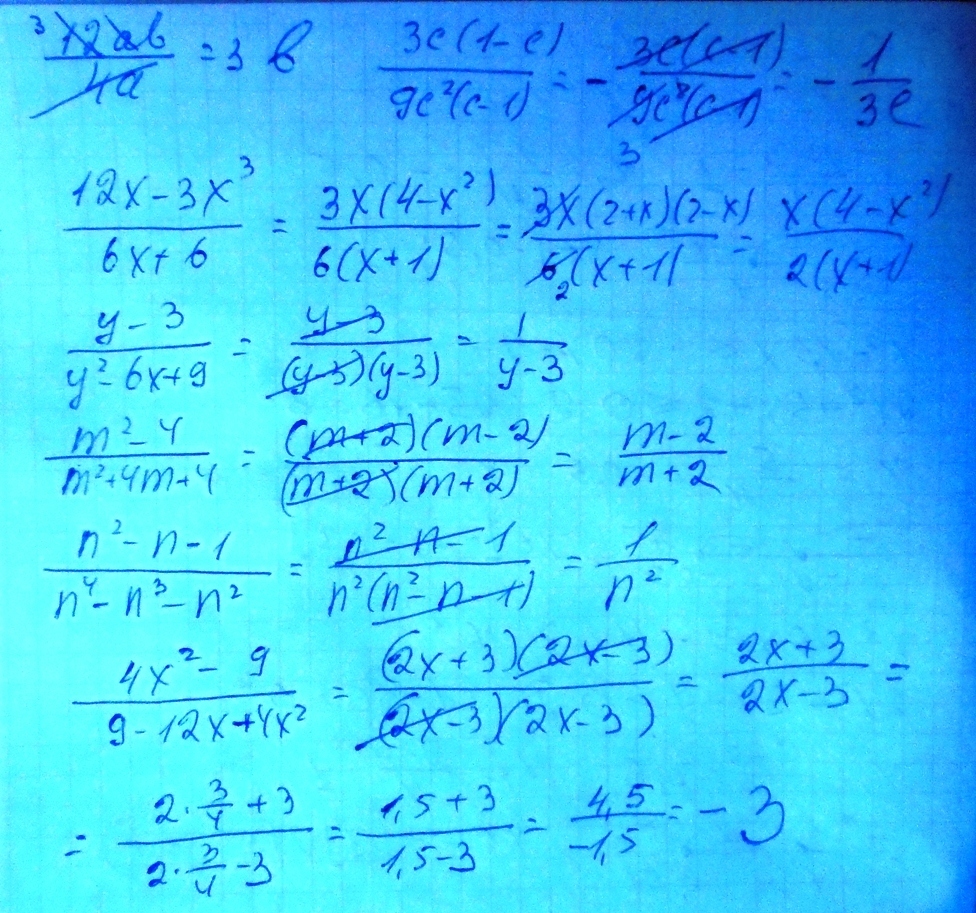 12ab/4a = 3b    3c(1-c)/9c²(c-1) = - 3c(c-1)/9c²(c-1) = - 1/3c
12x-3x³/6x+6 = 3x(4-x²)/6(x+1) = 3x(2+x)(2-x)/6(x+1) = x(4-x²)/2(x+1)
y-3/y²-6x+9 = y-3/(y-3)(y-3) = 1/y-3
m²-4/m²+4m+4 = (m+2)(m-2)/(m+2)(m+2) = m-2/m+2
n²-n-1/n⁴-n³-n² = n²-n-1/n²(n²-n-1) = 1/n²
4x²-9/9-12x+4x² = (2x+3)(2x-3)/(2x-3)(2x-3) = 2x+3/2x-3 =
= 2·3/4+3/2·3/4-3 = 1,5+3/1,5-3 = 4,5/-1,5 = -3